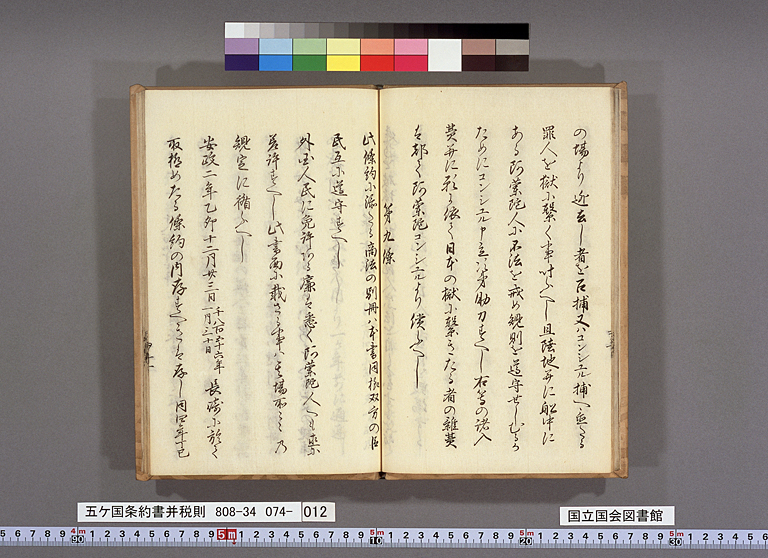 の場より逃去し者を召捕又ハコンシュル捕へ置たる
罪人を獄に繋く事叶ふへし且陸地并に船中に
ある阿蘭陀人に不法を戒め規則を遵守せしむるか
ためにコンシュル申立次第助力すへし右等の諸入
費并に願に依て日本の獄に繋きたる者の雑費
は都て阿蘭陀コンシュルより償ふへし
第九條
此條約に添たる商法の別冊ハ本書同様双方の臣
民互に遵守すへし
外国人民に免許ある廉は悉く阿蘭陀人へも
差許すへし此書面に載さる事ハ其場所々々乃
規定に循ふへし
安政二年乙卯十二月廿三日 千八百五十六年一月三十日 長崎に於て
取極めたる條約の内存すへきハ存し同四年丁巳
五ケ国条約書并税則 808-34 074- 012
国立国会図書館